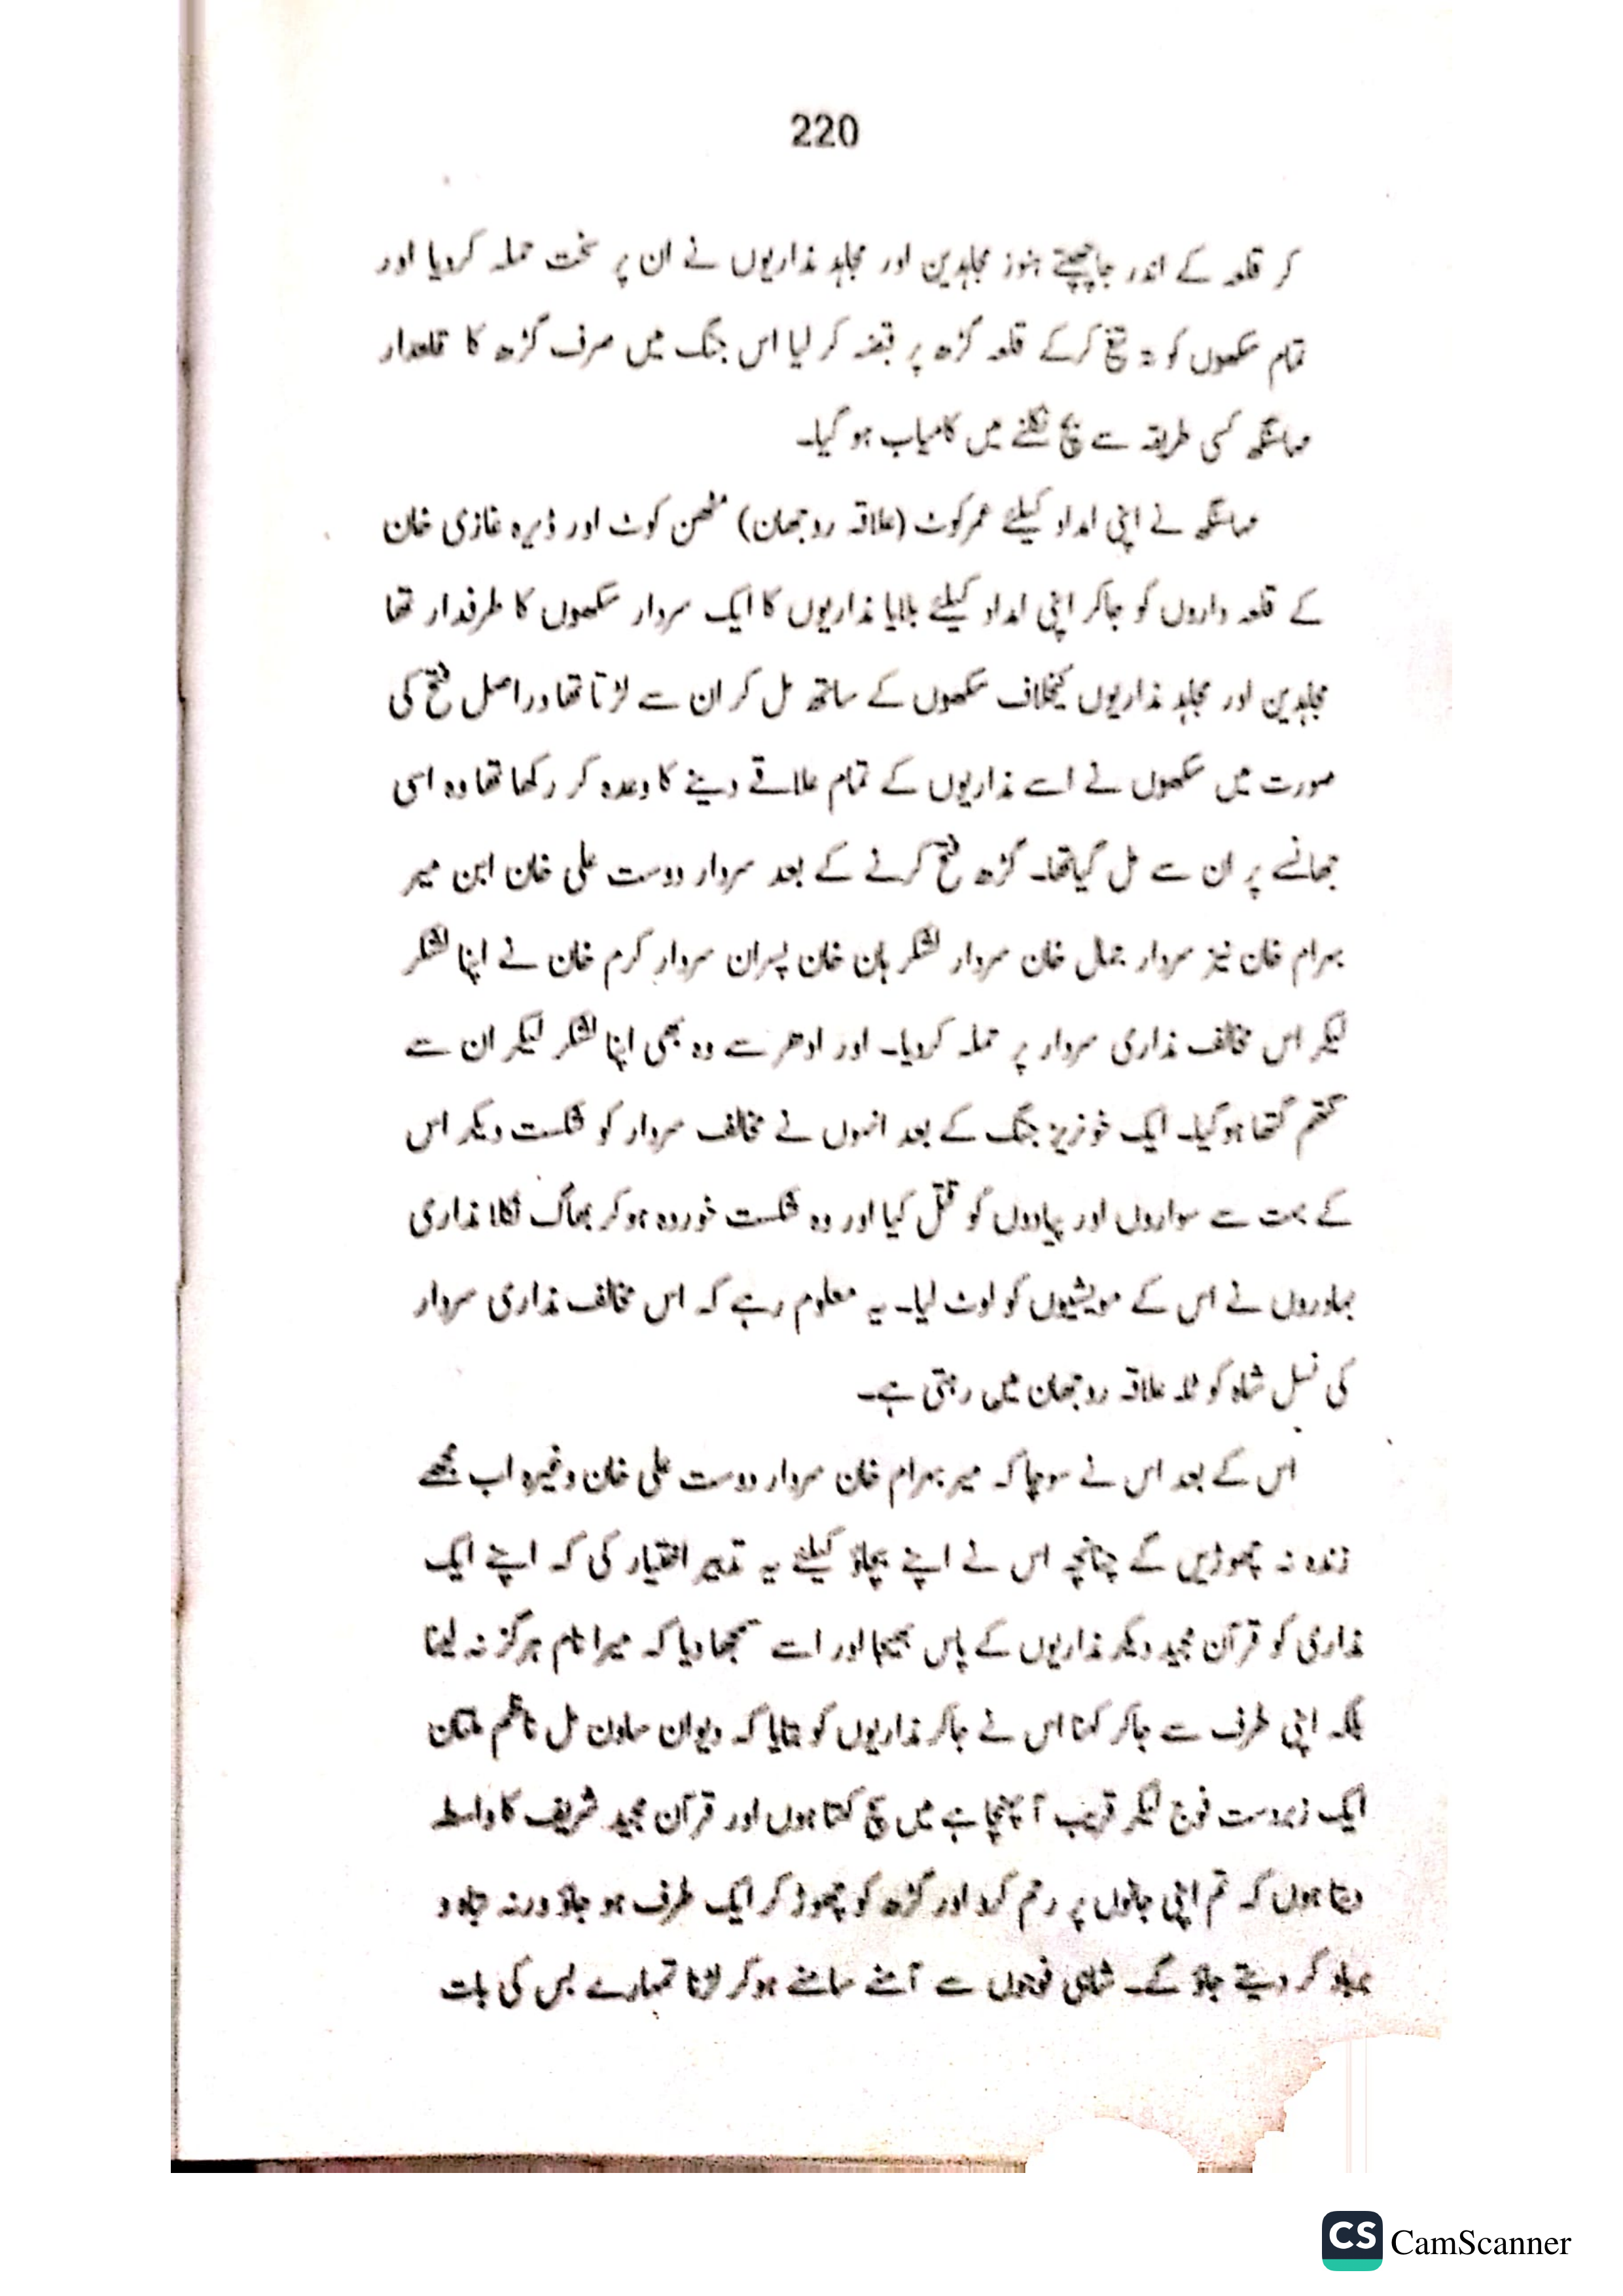 220
کر قلعہ کے اندر جاچھپتے ہنوز مجاہدین اور مجاہد مذاریوں نے ان پر سخت حملہ کردیا اور
تمام سکھوں کو تہ تیغ کرکے قلعہ گڑھ پر قبضہ کر لیا اس جنگ میں صرف گڑھ کا قلعدار
مہاسنگھ کسی طریقہ سے بچ نکلنے میں کامیاب ہو گیا۔
مہاسنگھ نے اپنی امداد کیلئے عمرکوٹ (علاقہ روجھان) مٹھن کوٹ اور ڈیرہ غازی خان
کے قلعہ داروں کو جاکر اپنی امداد کیلئے بلایا مذاریوں کا ایک سردار سکھوں کا طرفدار تھا
مجاہدین اور مجاہد مذاریوں کیخلاف سکھوں کے ساتھ مل کر ان سے لڑتا تھا دراصل فتح کی
صورت میں سکھوں نے اسے مذاریوں کے تمام علاقے دینے کا وعدہ کر رکھا تھا وہ اسی
جھانسے پر ان سے مل گیا تھا۔ گڑھ فتح کرنے کے بعد سردار دوست علی خان ابن میر
بہرام خان نیز سردار جمال خان سردار لشکر بان خان پسران سردار کرم خان نے اپنا لشکر
لیکر اس مخالف مذاری سردار پر حملہ کردیا۔ اور ادھر سے وہ بھی اپنا لشکر لیکر ان سے
گتھم گتھا ہوگیا۔ ایک خونریز جنگ کے بعد انہوں نے مخالف سردار کو شکست دیکر اس
کے بہت سے سواروں اور پیادوں کو قتل کیا اور وہ شکست خوردہ ہوکر بھاگ نکلا مذاری
بہادروں نے اس کے مویشیوں کو لوٹ لیا۔ یہ معلوم رہے کہ اس مخالف مذاری سردار
کی نسل شاہ کوٹلہ علاقہ روجھان میں رہتی ہے۔
اس کے بعد اس نے سوچا کہ میر بہرام خان سردار دوست علی خان وغیرہ اب مجھے
زندہ نہ چھوڑیں گے چنانچہ اس نے اپنے بچاؤ کیلئے یہ تدبیر اختیار کی کہ اپنے ایک
مذاری کو قرآن مجید دیکر مذاریوں کے پاس بھیجا اور اسے سمجھا دیا کہ میرا نام ہرگز نہ لینا
بلکہ اپنی طرف سے جاکر کہنا اس نے جاکر مذاریوں کو بتایا کہ دیوان ساون مل ناظم ملتان
ایک زبردست فوج لیکر قریب آ پہنچا ہے میں سچ کہتا ہوں اور قرآن مجید شریف کا واسطہ
دیتا ہوں کہ تم اپنی جانوں پر رحم کرو اور گڑھ کو چھوڑ کر ایک طرف ہو جاؤ ورنہ تباہ و
برباد کر دیئے جاؤ گے۔ شاہی فوجوں سے آمنے سامنے ہوکر لڑنا تمہارے بس کی بات
CS CamScanner